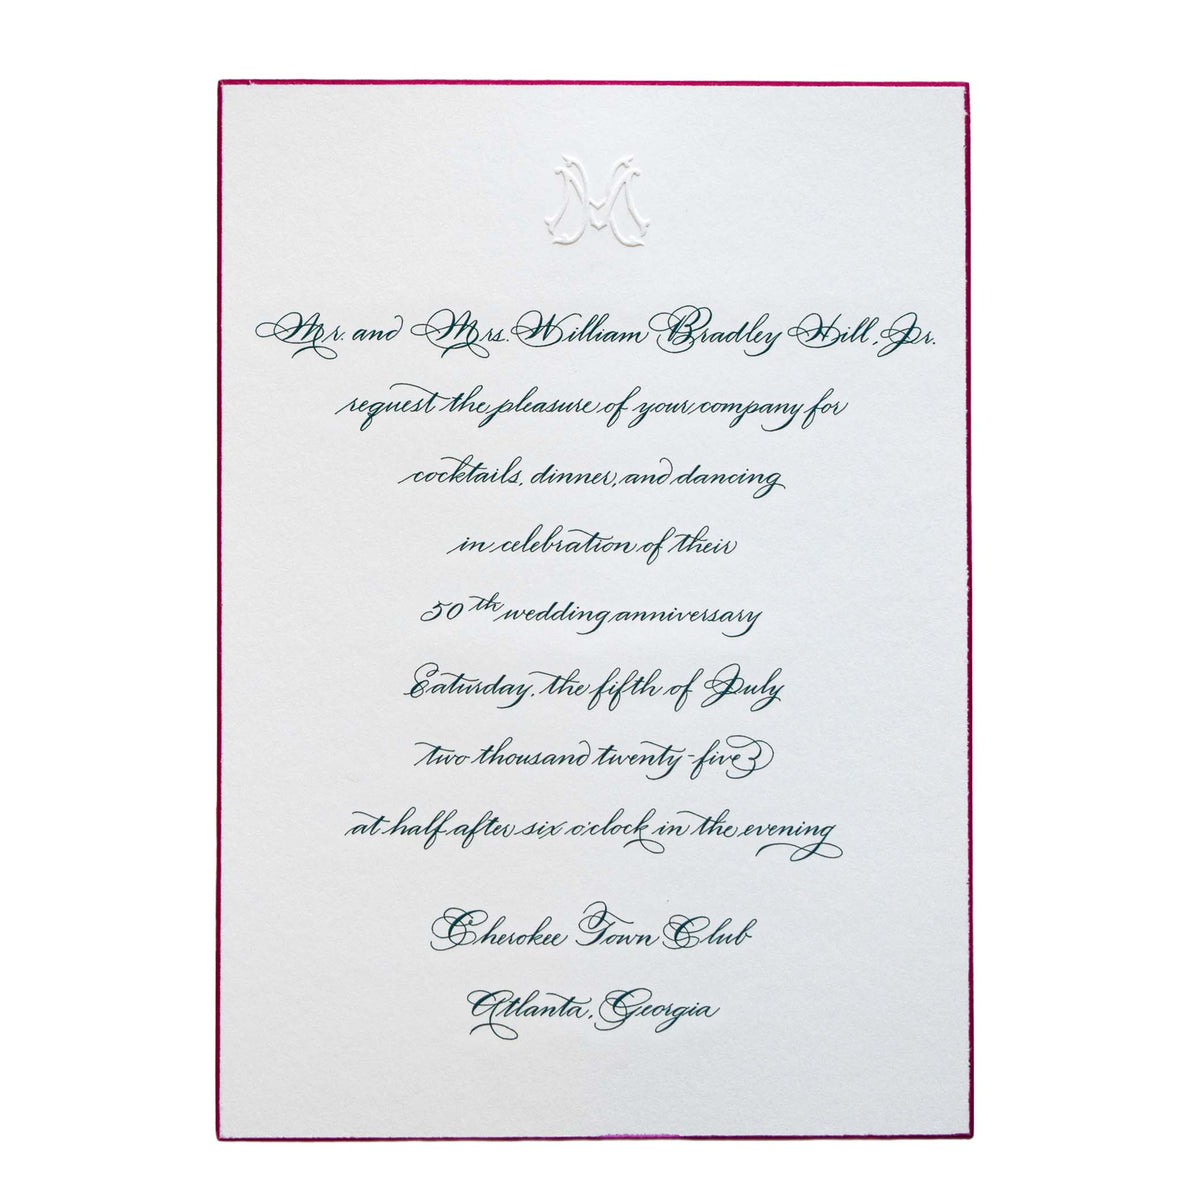 M
Mr. and Mrs. William Bradley Hill, Jr.
request the pleasure of your company for
cocktails, dinner, and dancing
in celebration of their
50th wedding anniversary
Saturday, the fifth of July
two thousand twenty-five
at half after six o'clock in the evening
Cherokee Town Club
Atlanta, Georgia